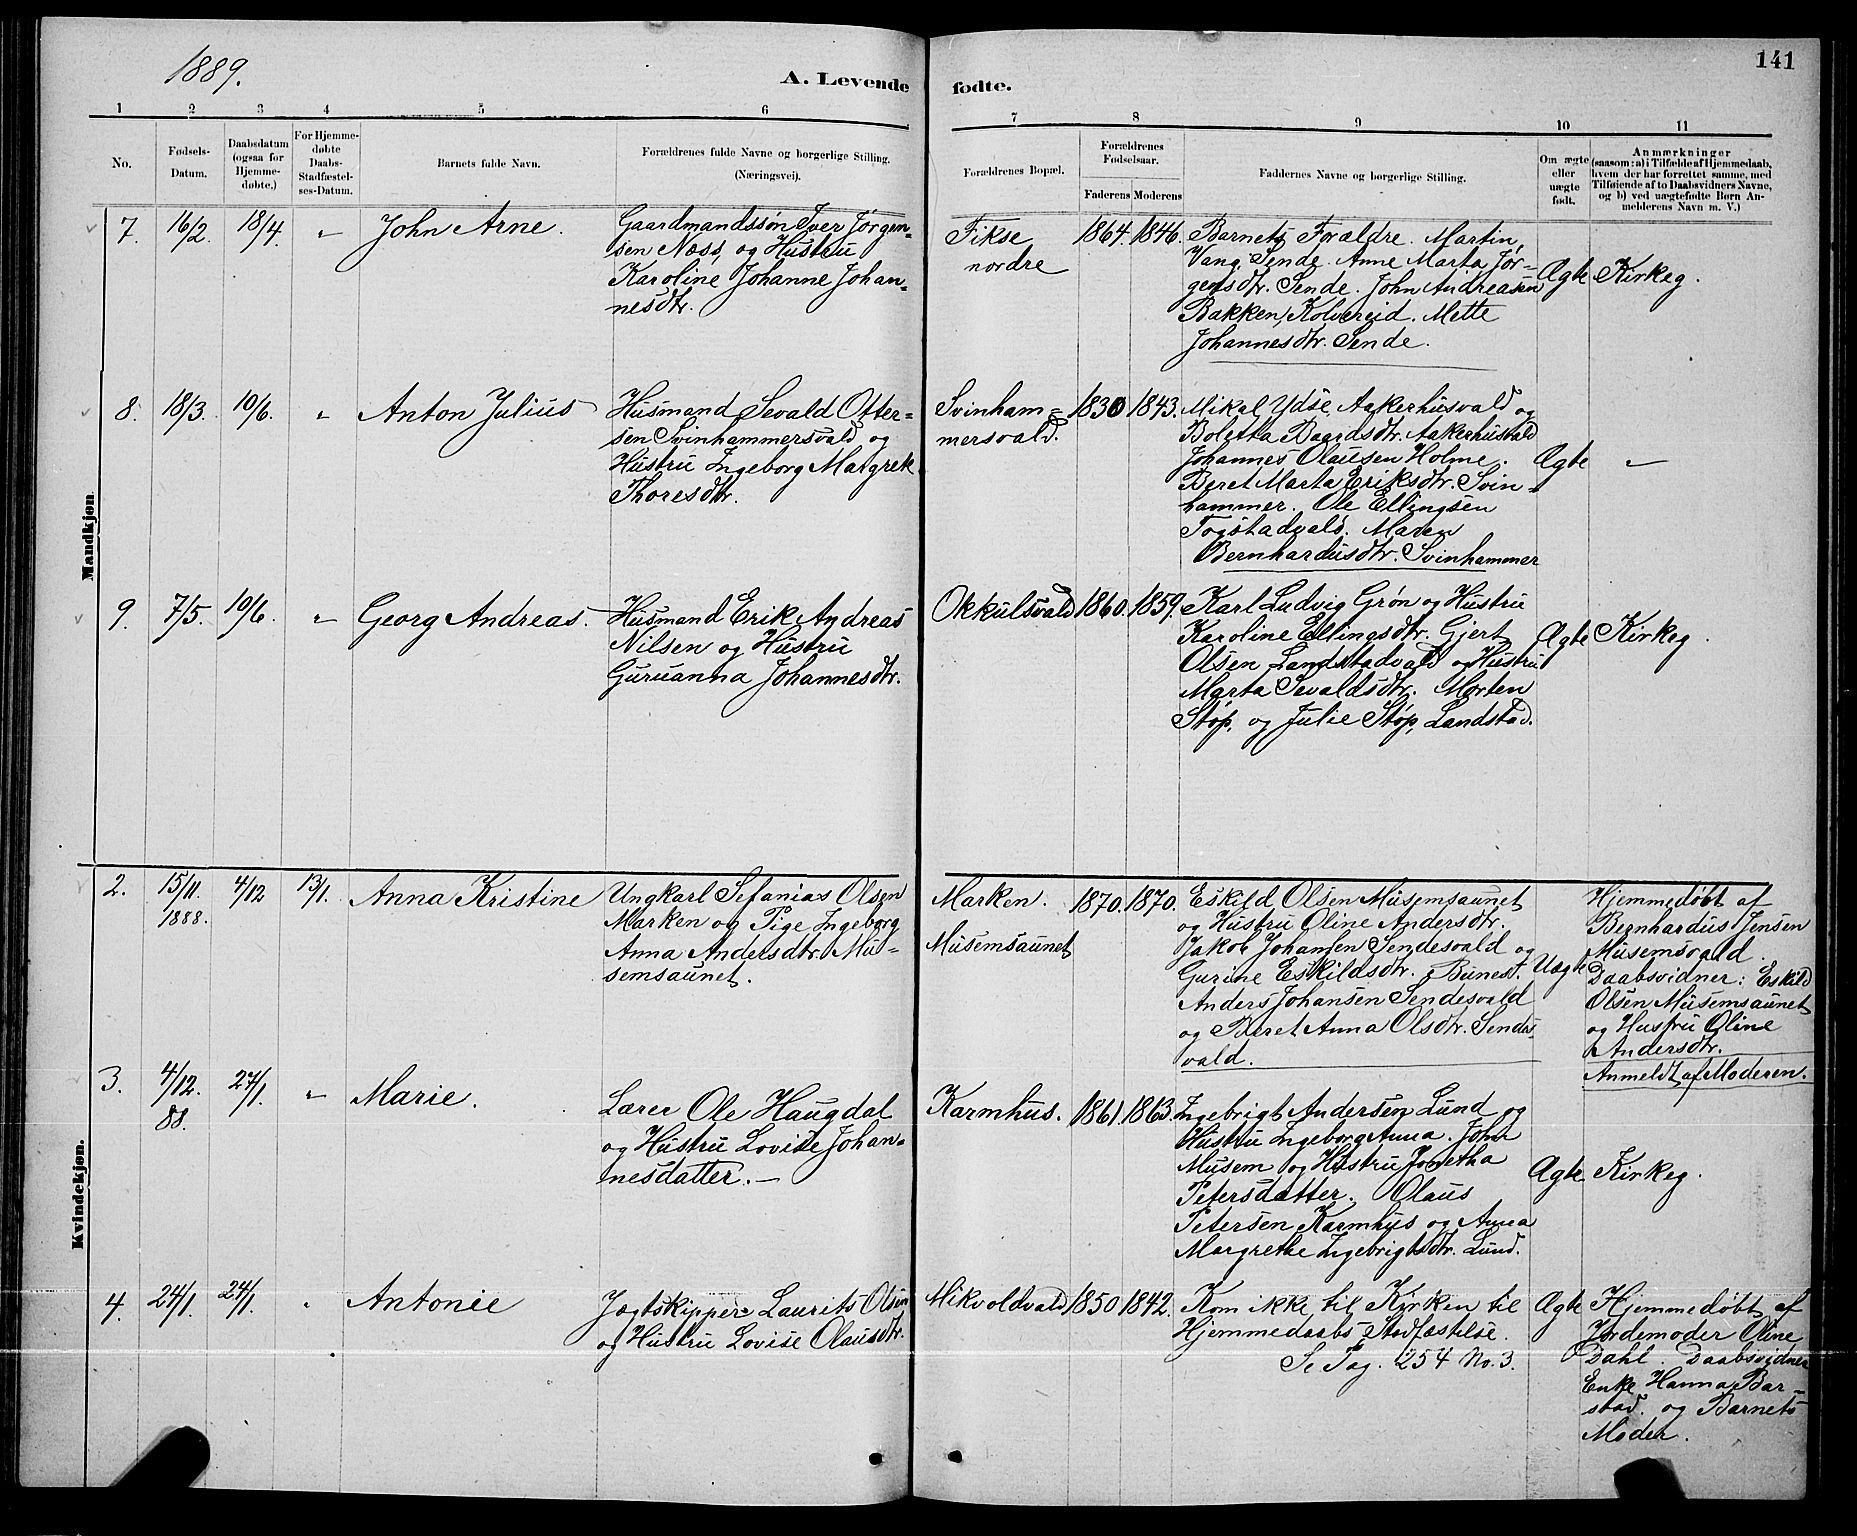 1889.
141
A. Levende fødte.
1 2 3 4 5 6 7 8 9 10 11
No.
Fødsels-
Datum.
Daabsdatum
(ogsaa for
Hjemme-
døbte.)
For Hjemme-
døbte
Daabs-
Stadfæstel-
ses-Datum.
Barnets fulde Navn.
Forældrenes fulde Navne og borgerlige Stilling.
(Næringsvei).
Forældrenes Bopæl.
Forældrenes
Fødselsaar.
Faderens Moderens
Faddernes Navne og borgerlige Stilling.
Om ægte
eller
uægte
født.
Anmærkninger
(saasom: a) i Tilfælde af Hjemmedaab,
hvem der har forrettet samme, med
Tilføiende af to Daabsvidners Navne,
og b) ved uægtefødte Børn An-
melderens Navn m. V.)
Mandkjøn.
7. 16/2. 18/4. „ John Arne.
Gaardmandssøn Iver Jørgen-
sen Næss, og Hustru
Karoline Johanne Johan-
nesdtr.
Fikse
nordre
1864. 1846.
Barnets Forældre. Martin
Vang, Sende. Anne Marta Jør-
gensdtr. Sende. John Andreasen
Bakken, Kolvereid. Mette
Johannesdtr. Sende.
Ægte
Kirkeg.
8. 18/3. 10/6. „ Anton Julius
Husmand Sevald Otter-
sen Svinhammersvald og
Hustru Ingeborg Margrete
Thoresdtr.
Svinham-
mersvald.
1830 1843.
Mikal Ydse Aakerhusvald og
Boletta Baardsdtr. Aakerhusvald
Johannes Olausen Holme.
Beret Marta Eriksdtr. Svin-
hammer. Ole Ellingsen
Togstadvald. Maren
Bernhardusdtr. Svinhammer
Ægte
„
9. 7/5. 10/6. „ Georg Andreas.
Husmand Erik Andreas
Nilsen og Hustru
Guruanna Johannesdtr.
Okkulsvald
1860. 1859.
Karl Ludvig Grøn og Hustru
Karoline Ellingsdtr. Gjert
Olsen Landstadvald og Hustru
Marta Sevaldsdtr. Morten
Støp, og Julie Støp, Landstad.
Ægte
Kirkeg.
Kvindekjøn.
2. 15/11. 4/12 13/1. Anna Kristine
1888.
Ungkarl Sefanias Olsen
Marken og Pige Ingeborg
Anna Andersdtr. Mu-
semsaunet.
Marken.
Musemsaunet
1870. 1870.
Eskild Olsen Musemsaunet
og Hustru Oline Andersdtr.
Jakob Johansen Sendesvald og
Gurine Eskildsdtr. Bunest.
Anders Johansen Sendesvald
og Beret Anna Olsdtr. Sendes-
vald.
Uægte
Hjemmedøbt af
Bernhardus Jensen
Musemsvald.
Daabsvidner: Eskild
Olsen Musemsaunet
og Hustru Oline
Andersdtr.
Anmeldt af Moderen.
3. 4/12. 27/1. „ Marie.
88.
Lærer Ole Haugdal
og Hustru Lovise Johan-
nesdatter. —
Karmhus.
1861. 1863.
Ingebrigt Andersen Lund og
Hustru Ingeborg Anna. John
Musem og Hustru Jonetha
Petersdatter. Olaus
Petersen Karmhus og Anna
Margrethe Ingebrigtsdtr. Lund.
Ægte
Kirkeg.
4. 24/1. 24/1. „ Antonie
Jægtskipper Laurits Olsen
og Hustru Lovise Olausdtr.
Mikvoldvald
1850 1842.
Kom ikke til Kirken til
Hjemmedaabs Stadfæstelse.
Se Pag. 254 No. 3.
Ægte
Hjemmedøbt af
Jordemoder Oline
Dahl. Daabsvidner
Enke Hanna Bar-
stad og Barnets
Moder.